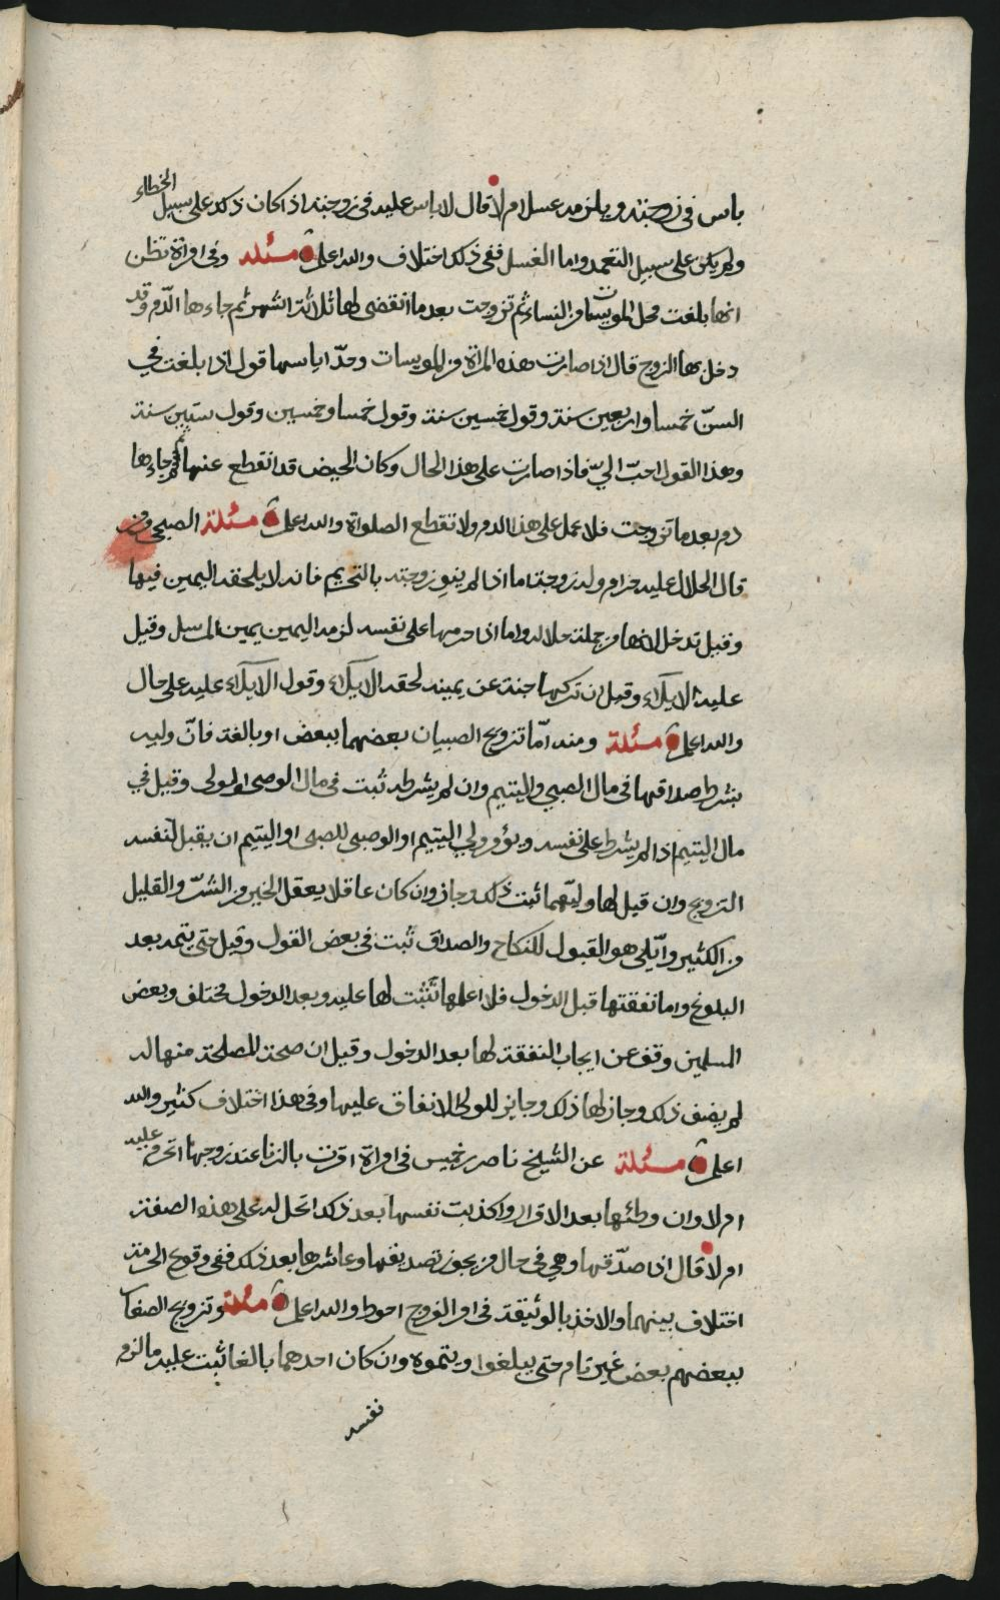 باس في زوجته ويلزمه غسل ام لا قال لا باس عليه في زوجته اذا كان ذلك على سبيل الخطاء
ولم يكن على سبيل التعمد واما الغسل ففي ذلك اختلاف والله اعلم مسئله وفي امراة تظن
انها بلغت محل المويسات من النساء ثم تزوجت بعدما انقضى لها ثلاثة اشهر ثم جاءها الدم وقد
دخل بها الزوج قال اذا صارت هذه المراة من المويسات وحدّ اياسها قول اذا بلغت في
السنّ خمسا واربعين سنة وقول خمسين سنة وقول خمسا وخمسين وقول ستين سنة
وهذا القول احبّ اليّ فاذا صارت على هذا الحال وكان الحيض قد انقطع عنها ثم جاءها
دم بعدما تزوجت فلا عمل على هذا الدم ولا تقطع الصلواة والله اعلم مسئلة الصبحي ومن
قال الحلال عليه حرام وله زوجة اما اذا لم ينو زوجته بالتحريم فانه لا يلحقه اليمين فيها
وقيل تدخل لانها من جملة حلاله واما اذا حرمها على نفسه لزمه اليمين يمين المرسل وقيل
عليه الايلاء وقيل ان تركها جنة عن يمينه لحقه الايلاء وقول الايلاء عليه على حال
والله اعلم مسئلة ومنه امّا تزويج الصبيان بعضهما ببعض او بالغة فانّ وليه
يشرط صداقها في مال الصبي واليتيم وان لم يشرطه ثبت في مال الوصي او الولي وقيل في
مال اليتيم اذا لم يشرط على نفسه ويؤمر ولي اليتيم او الوصي للصبي او اليتيم ان يقبل لنفسه
التزويج وان قيل لها وليهما ثبت ذلك وجاز وان كان عاقلا يعقل الخير من الشرّ والقليل
من الكثير وابلى هو القبول للنكاح والصداق ثبت في بعض القول وقيل حتى يتمه بعد
البلوغ واما نفقتها قبل الدخول فلا اعلمها تثبت لها عليه وبعد الدخول مختلف وبعض
المسلمين وقف عن ايجاب النفقة لها بعد الدخول وقيل ان صحت المصلحة منها له
لم يضف ذلك وجاز لها ذلك وجايز للولي الانفاق عليها وفي هذا اختلاف كثير والله
اعلم مسئلة عن الشيخ ناصر بن خميس في امراة اقرت بالزنا عند زوجها اتحرم عليه
ام لا وان وطئها بعد الاقرار واكذبت نفسها بعد ذلك اتحل له على هذه الصفة
ام لا قال اذا صدّقها وهي في حال من يجوز تصديقها وعاشرها بعد ذلك ففي وقوع الحرمة
اختلاف بينهما والاخذ بالوثيقة في امر الفروج احوط والله اعلم مسئلة وتزويج الصغار
ببعضهم بعض غير تام حتى يبلغوا ويتموه وان كان احدهما بالغا ثبت عليه ما الزم
نفسه